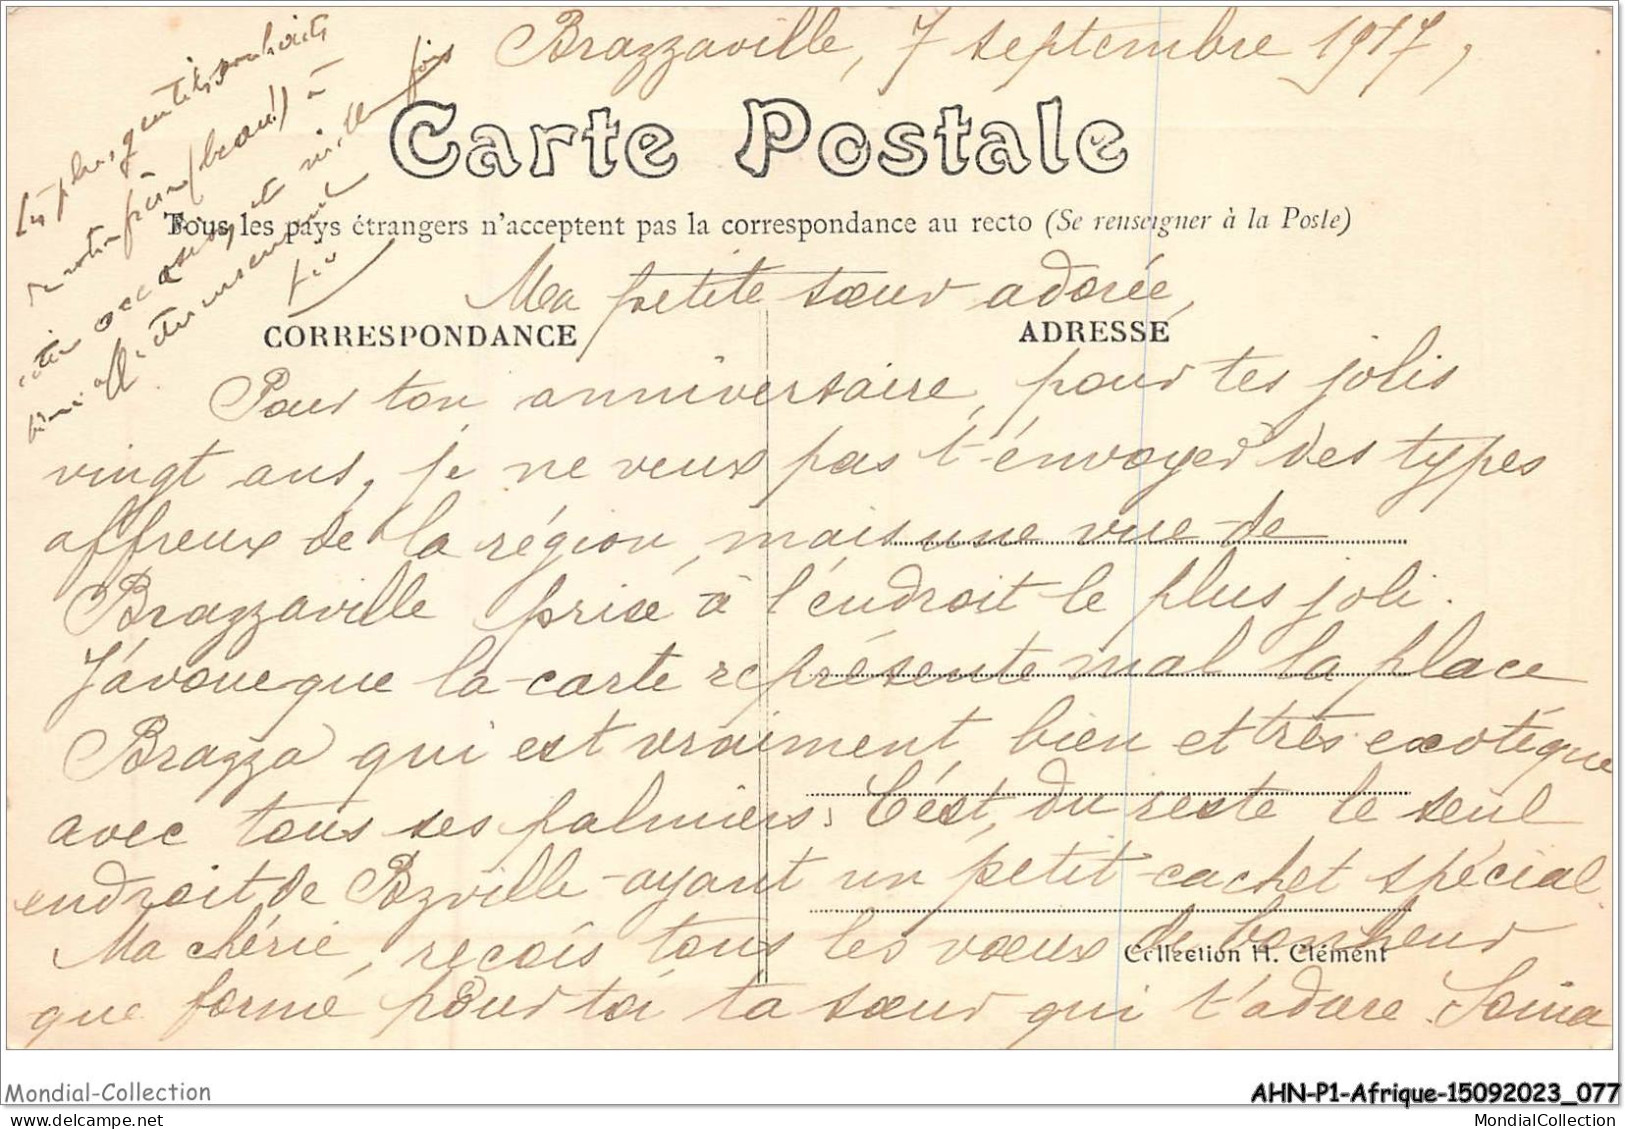 Brazzaville, 7 septembre 1917,
Les plus gentils souhaits
de votre frère (beau!) à
cette occasion, et mille fois
bien affectueusement
Carte Postale
Tous les pays étrangers n'acceptent pas la correspondance au recto (Se renseigner à la Poste)
Ma petite sœur adorée,
CORRESPONDANCE
ADRESSE
Pour ton anniversaire, pour tes jolis
vingt ans, je ne veux pas t'envoyer des types
affreux de la région, mais une vue de
Brazzaville prise à l'endroit le plus joli.
J'avoue que la carte représente mal la place
Brazza qui est vraiment bien et très exotique
avec tous ses palmiers. C'est, du reste le seul
endroit de Bzville ayant un petit cachet spécial
Ma chérie, reçois tous les vœux de bonheur
Collection H. Clément
que forme pour toi ta sœur qui t'adore.
Mondial-Collection
AHN-P1-Afrique-15092023_077
Mondial-Collection.delcampe.net
MondialCollection